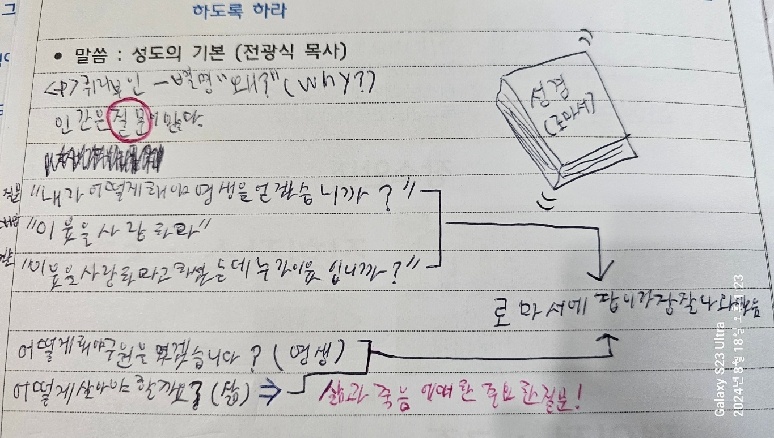 하도록 하라
• 말씀 : 성도의 기본 (전광식 목사)
인간은 질문이 많다.
성경
(로마서)
질문 "내가 어떻게 해야 영생을 얻겠습니까?"
"이웃을 사랑하라"
"이웃을 사랑하라고 하셨는데 누가 이웃입니까?"
로마서에 답이 가장 잘 나와있음
어떻게 해야 구원을 얻겠습니다? (영생)
어떻게 살아야 할까요? (삶) ⇒ 삶과 죽음에 대한 중요한 질문!
Galaxy S23 Ultra
2024년 8월 18일